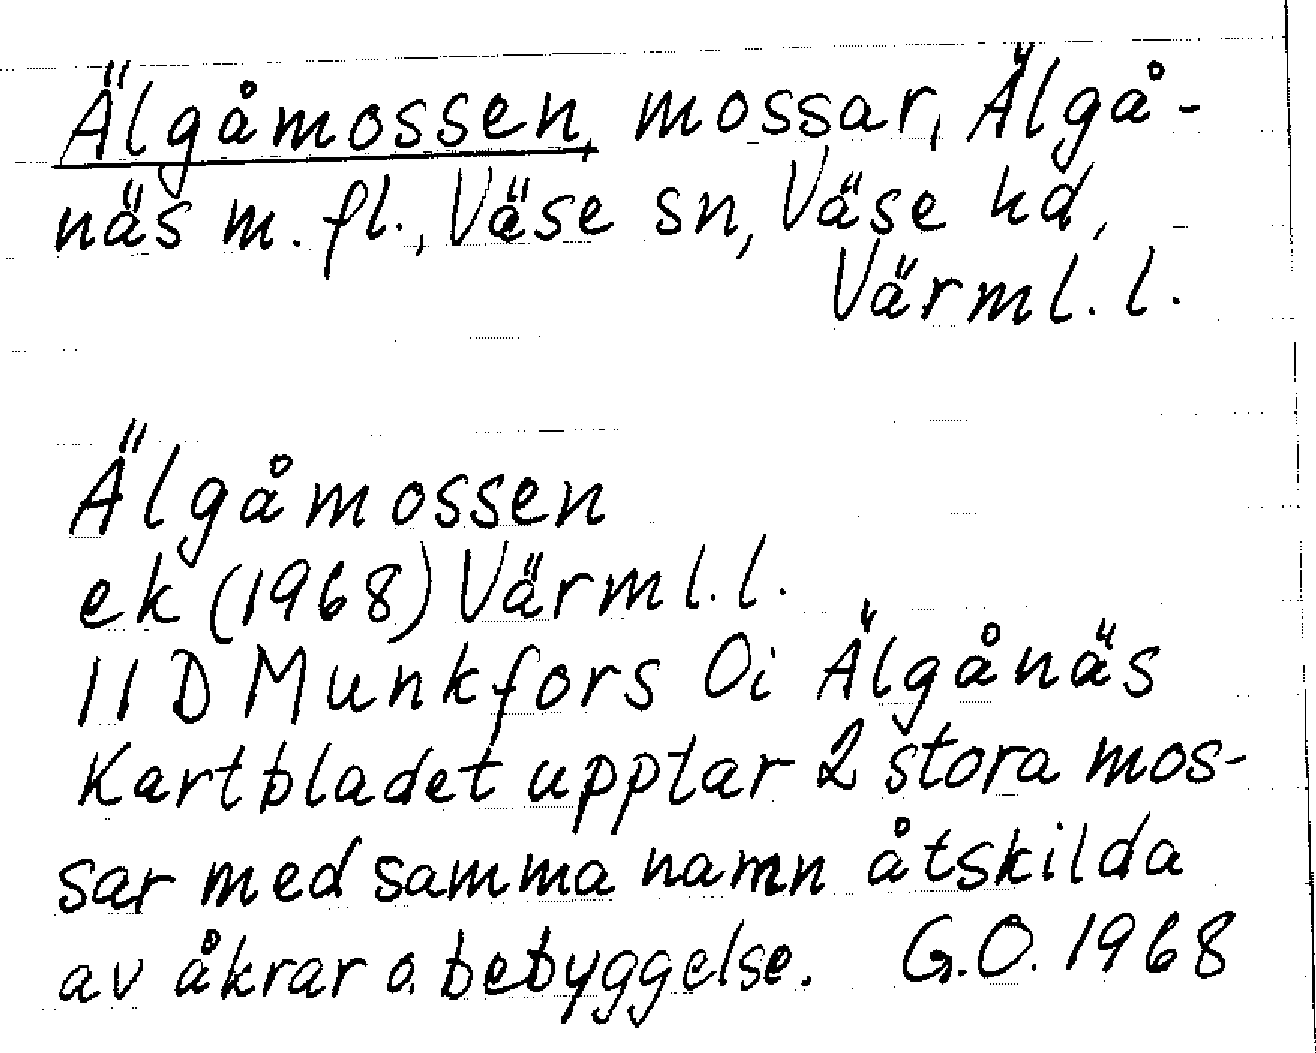 Älgåmossen, mossar, Älgå-
näs m. fl., Väse sn, Väse hd,
Värml. l.
Älgåmossen
ek (1968) Värml. l.
11 D Munkfors Oi Älgånäs
Kartbladet upptar 2 stora mos-
sar med samma namn åtskilda
av åkrar o. bebyggelse. G.O. 1968